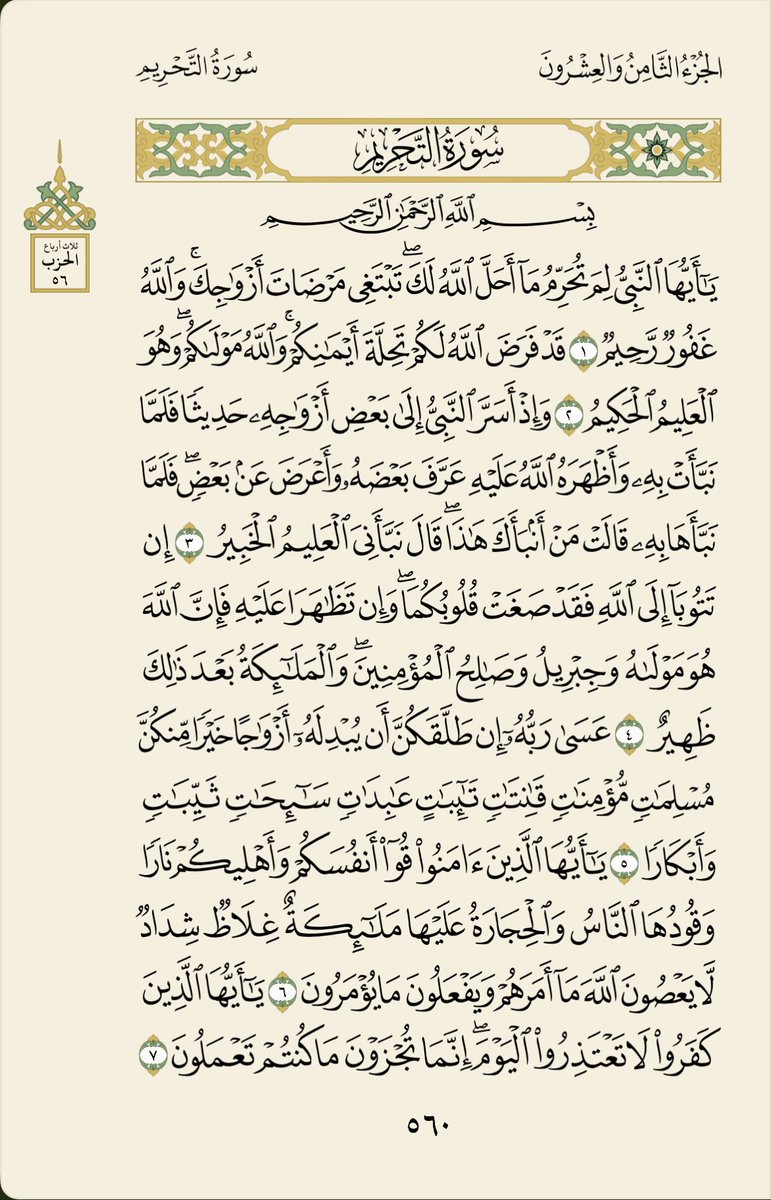 الجُزْءُ الثَّامِنُ وَالعِشْرُونَ
سُورَةُ التَّحْرِيمِ
سُورَةُ التَّحْرِيمِ
ثلاثة أرباع
الحزب
٥٦
بِسْمِ ٱللَّهِ ٱلرَّحْمَٰنِ ٱلرَّحِيمِ
يَٰٓأَيُّهَا ٱلنَّبِيُّ لِمَ تُحَرِّمُ مَآ أَحَلَّ ٱللَّهُ لَكَۖ تَبْتَغِى مَرْضَاتَ أَزْوَٰجِكَۚ وَٱللَّهُ
غَفُورٌ رَّحِيمٌ ١ قَدْ فَرَضَ ٱللَّهُ لَكُمْ تَحِلَّةَ أَيْمَٰنِكُمْۚ وَٱللَّهُ مَوْلَىٰكُمْۖ وَهُوَ
ٱلْعَلِيمُ ٱلْحَكِيمُ ٢ وَإِذْ أَسَرَّ ٱلنَّبِيُّ إِلَىٰ بَعْضِ أَزْوَٰجِهِۦ حَدِيثًا فَلَمَّا
نَبَّأَتْ بِهِۦ وَأَظْهَرَهُ ٱللَّهُ عَلَيْهِ عَرَّفَ بَعْضَهُۥ وَأَعْرَضَ عَنۢ بَعْضٍۖ فَلَمَّا
نَبَّأَهَا بِهِۦ قَالَتْ مَنْ أَنۢبَأَكَ هَٰذَاۖ قَالَ نَبَّأَنِىَ ٱلْعَلِيمُ ٱلْخَبِيرُ ٣ إِن
تَتُوبَآ إِلَى ٱللَّهِ فَقَدْ صَغَتْ قُلُوبُكُمَاۖ وَإِن تَظَٰهَرَا عَلَيْهِ فَإِنَّ ٱللَّهَ
هُوَ مَوْلَىٰهُ وَجِبْرِيلُ وَصَٰلِحُ ٱلْمُؤْمِنِينَۖ وَٱلْمَلَٰٓئِكَةُ بَعْدَ ذَٰلِكَ
ظَهِيرٌ ٤ عَسَىٰ رَبُّهُۥٓ إِن طَلَّقَكُنَّ أَن يُبْدِلَهُۥٓ أَزْوَٰجًا خَيْرًا مِّنكُنَّ
مُسْلِمَٰتٍ مُّؤْمِنَٰتٍ قَٰنِتَٰتٍ تَٰٓئِبَٰتٍ عَٰبِدَٰتٍ سَٰٓئِحَٰتٍ ثَيِّبَٰتٍ
وَأَبْكَارًا ٥ يَٰٓأَيُّهَا ٱلَّذِينَ ءَامَنُوا۟ قُوٓا۟ أَنفُسَكُمْ وَأَهْلِيكُمْ نَارًا
وَقُودُهَا ٱلنَّاسُ وَٱلْحِجَارَةُ عَلَيْهَا مَلَٰٓئِكَةٌ غِلَاظٌ شِدَادٌ
لَّا يَعْصُونَ ٱللَّهَ مَآ أَمَرَهُمْ وَيَفْعَلُونَ مَا يُؤْمَرُونَ ٦ يَٰٓأَيُّهَا ٱلَّذِينَ
كَفَرُوا۟ لَا تَعْتَذِرُوا۟ ٱلْيَوْمَۖ إِنَّمَا تُجْزَوْنَ مَا كُنتُمْ تَعْمَلُونَ ٧
٥٦٠